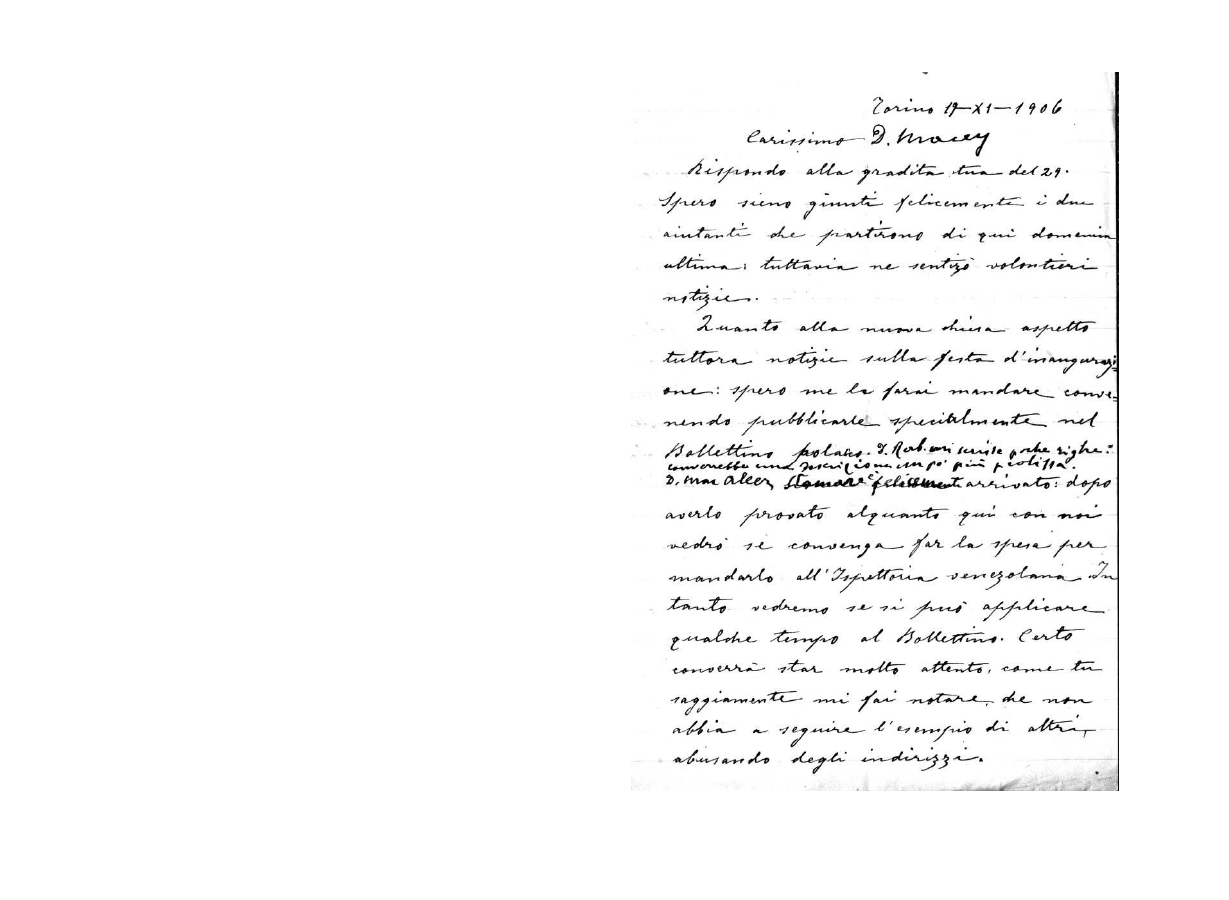 Torino 17-XI-1906
Carissimo D. Macey
Rispondo alla gradita tua del 29.
Spero sieno giunti felicemente i due
aiutanti che partirono di qui domenica
ultima: tuttavia ne sentirò volontieri
notizie.
Quanto alla nuova chiesa aspetto
tuttora notizie sulla festa d'inaugurazi-
one: spero me le farai mandare conve-
nendo pubblicarle specialmente nel
Bollettino polacco. D. scrisse poche righe:
converrebbe una descrizione un po' più prolissa.
D. Mac è arrivato: dopo
averlo provato alquanto qui con noi
vedrò se convenga far la spesa per
mandarlo all'Ispettoria venezolana. In
tanto vedremo se si può applicare
qualche tempo al Bollettino. Certo
converrà star molto attento, come tu
saggiamente mi fai notare, che non
abbia a seguire l'esempio di altri,
abusando degli indirizzi.